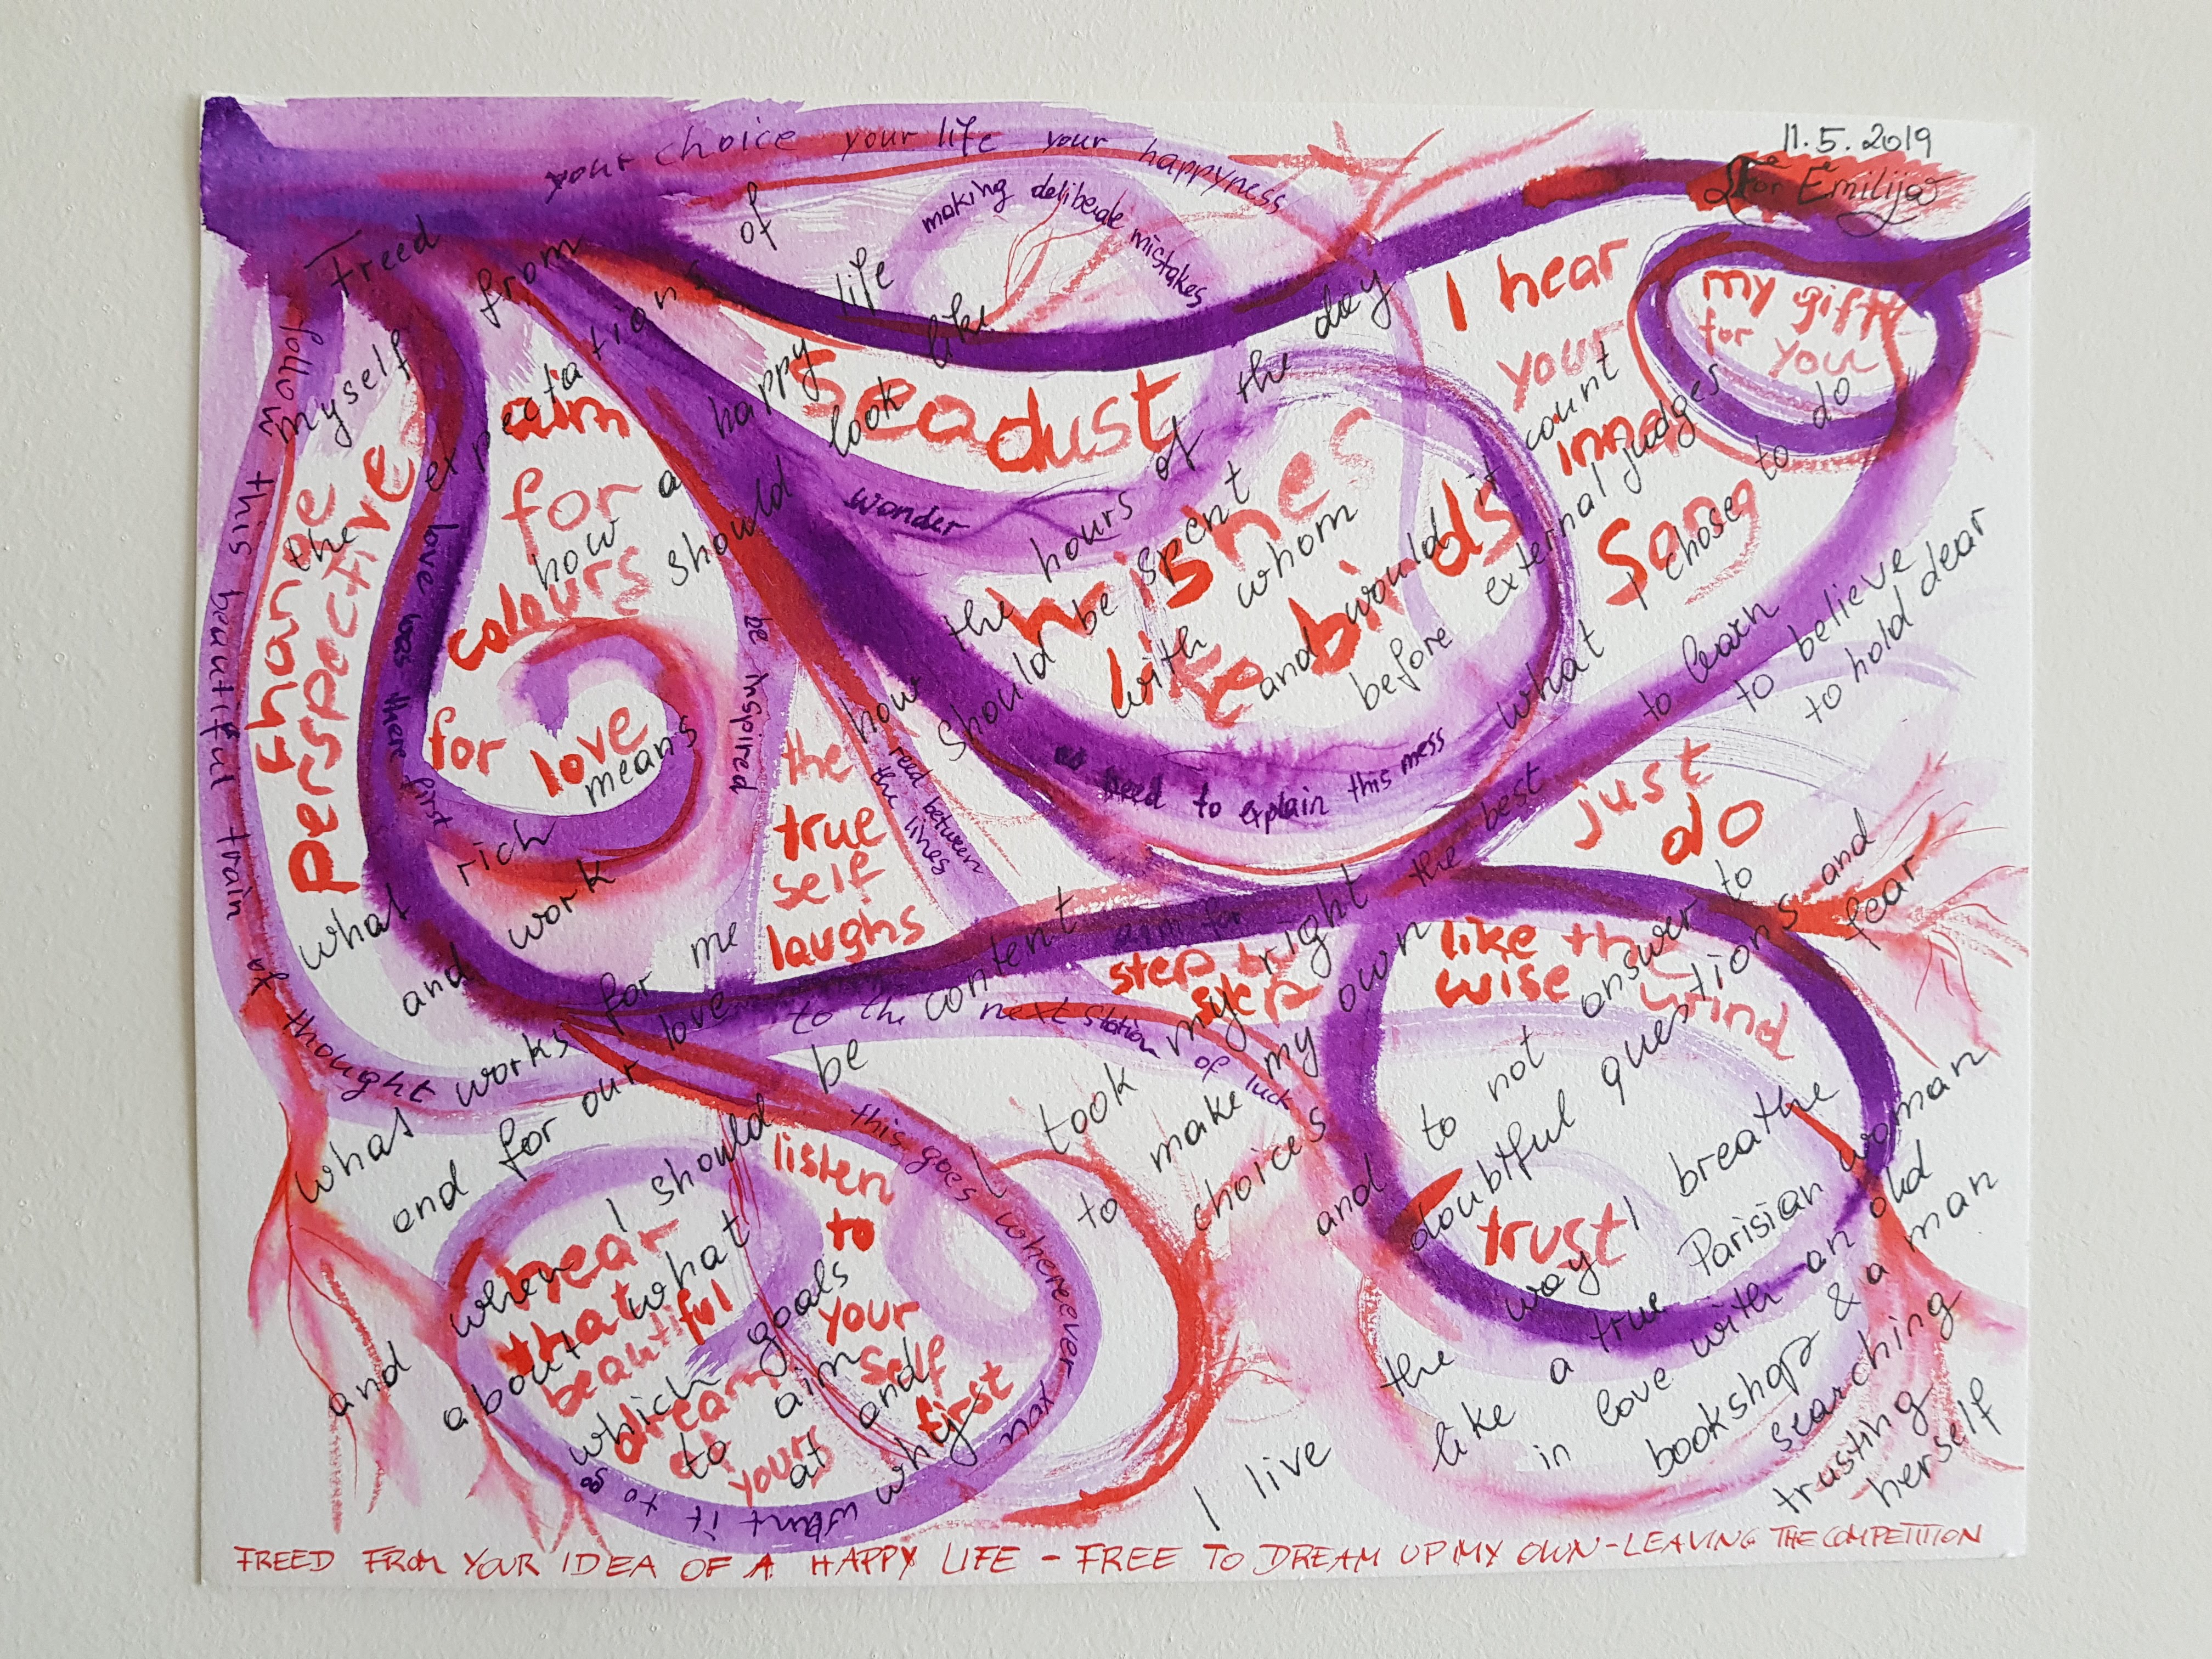 11.5.2019
For Emilija
your choice your life your happyness
making deliberate mistakes
Freed
myself
from
the
expectations
of
how
a
happy
life
should
look
like
what
rich
means
and
work
how
the
hours
of
the
day
should
be
spent
with
whom
and
would
it
count
before
external
judges
what works for me
and for our love
and when I should be content
about what
which goals
to aim
at and
why
I took my right
to make my own
choices
what I chose to do
the best to learn
to believe
to hold dear
and to not answer to
doubtful questions and fear
I live the way I breathe
like a true Parisian woman
in love with an old
bookshop & a man
searching
trusting
herself
follow this beautiful train of thought
to the next station of luck
change
perspective
love was there first
aim
for
colours
for love
be inspired
Seadust
wonder
wishes
like birds
no need to explain this mess
read between
the lines
the
true
self
laughs
I hear
your
inner
song
my gift
for
you
just
do
aim for
step by
step
like the
wise wind
trust
hear
that
beautiful
dream
of
yours
listen
to
your
self
first
this goes wherever you want it to go
FREED FROM YOUR IDEA OF A HAPPY LIFE - FREE TO DREAM UP MY OWN - LEAVING THE COMPETITION